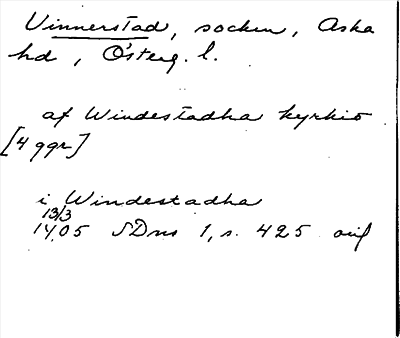 Vinnerstad, socken, Aska
hd, Österg. l.
af Windestadha kyrkio
[4 ggr]
i Windestadha
13/3
1405 SDns 1, s. 425 orig